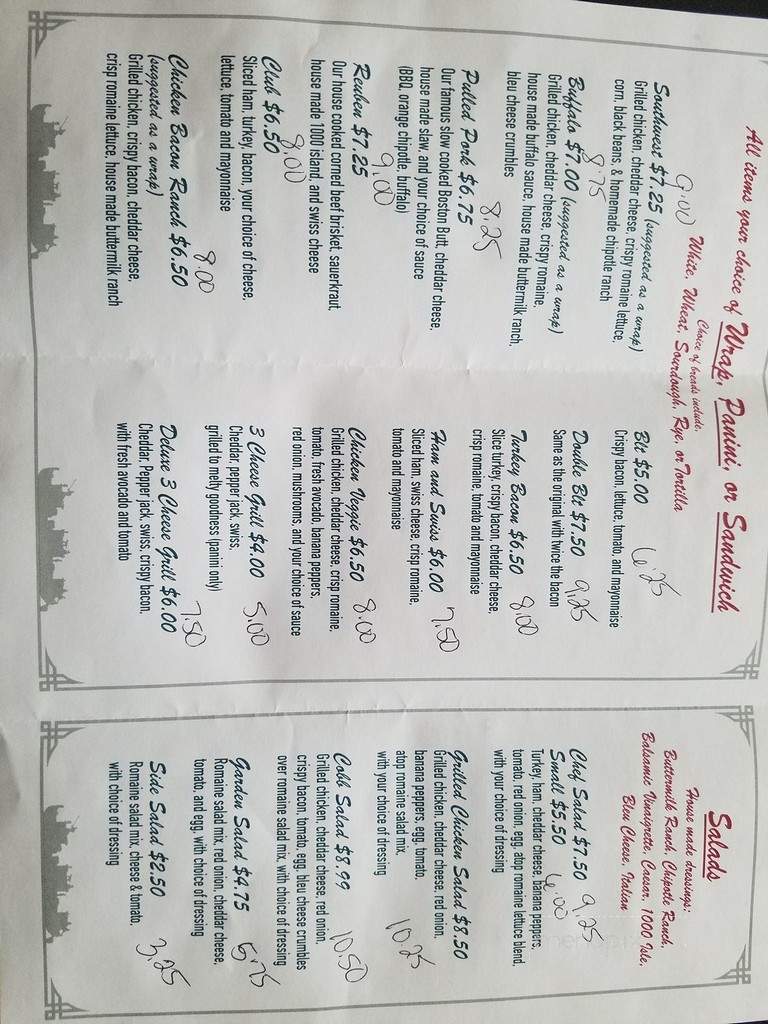 All items your choice of Wrap, Panini, or Sandwich
Choice of breads include:
White, Wheat, Sourdough, Rye, or Tortilla
9.00
Southwest $7.25 (suggested as a wrap)
Grilled chicken, cheddar cheese, crispy romaine lettuce,
corn, black beans, & homemade chipotle ranch
8.75
Buffalo $7.00 (suggested as a wrap)
Grilled chicken, cheddar cheese, crispy romaine,
house made buffalo sauce, house made buttermilk ranch,
bleu cheese crumbles
Pulled Pork $6.75 8.25
Our famous slow cooked Boston Butt, cheddar cheese,
house made slaw, and your choice of sauce
(BBQ, orange chipotle, buffalo)
Reuben $7.25 9.00
Our house cooked corned beef brisket, sauerkraut,
house made 1000 island, and swiss cheese
Club $6.50 8.00
Sliced ham, turkey, bacon, your choice of cheese,
lettuce, tomato and mayonnaise
Chicken Bacon Ranch $6.50 8.00
(suggested as a wrap)
Grilled chicken, crispy bacon, cheddar cheese,
crisp romaine lettuce, house made buttermilk ranch
Blt $5.00 6.25
Crispy bacon, lettuce, tomato, and mayonnaise
Double Blt $7.50 9.25
Same as the original with twice the bacon
Turkey Bacon $6.50 8.00
Slice turkey, crispy bacon, cheddar cheese,
crisp romaine, tomato and mayonnaise
Ham and Swiss $6.00 7.50
Sliced ham, swiss cheese, crisp romaine,
tomato and mayonnaise
Chicken Veggie $6.50 8.00
Grilled chicken, cheddar cheese, crisp romaine,
tomato, fresh avocado, banana peppers,
red onion, mushrooms, and your choice of sauce
3 Cheese Grill $4.00 5.00
Cheddar, pepper jack, swiss,
grilled to melty goodness (panini only)
Deluxe 3 Cheese Grill $6.00 7.50
Cheddar, Pepper jack, swiss, crispy bacon,
with fresh avocado and tomato
Salads
House made dressings:
Buttermilk Ranch, Chipotle Ranch,
Balsamic Vinaigrette, Caesar, 1000 Isle,
Bleu Cheese, Italian
Chef Salad $7.50 9.25
Small $5.50 6.00
Turkey, ham, cheddar cheese, banana peppers,
tomato, red onion, egg, atop romaine lettuce blend,
with your choice of dressing
Grilled Chicken Salad $8.50
Grilled chicken, cheddar cheese, red onion,
banana peppers, egg, tomato,
atop romaine salad mix, 10.25
with your choice of dressing
Cobb Salad $8.99 10.50
Grilled chicken, cheddar cheese, red onion,
crispy bacon, tomato, egg, bleu cheese crumbles
over romaine salad mix, with choice of dressing
Garden Salad $4.75 5.75
Romaine salad mix, red onion, cheddar cheese,
tomato, and egg, with choice of dressing
Side Salad $2.50 3.25
Romaine salad mix, cheese & tomato,
with choice of dressing